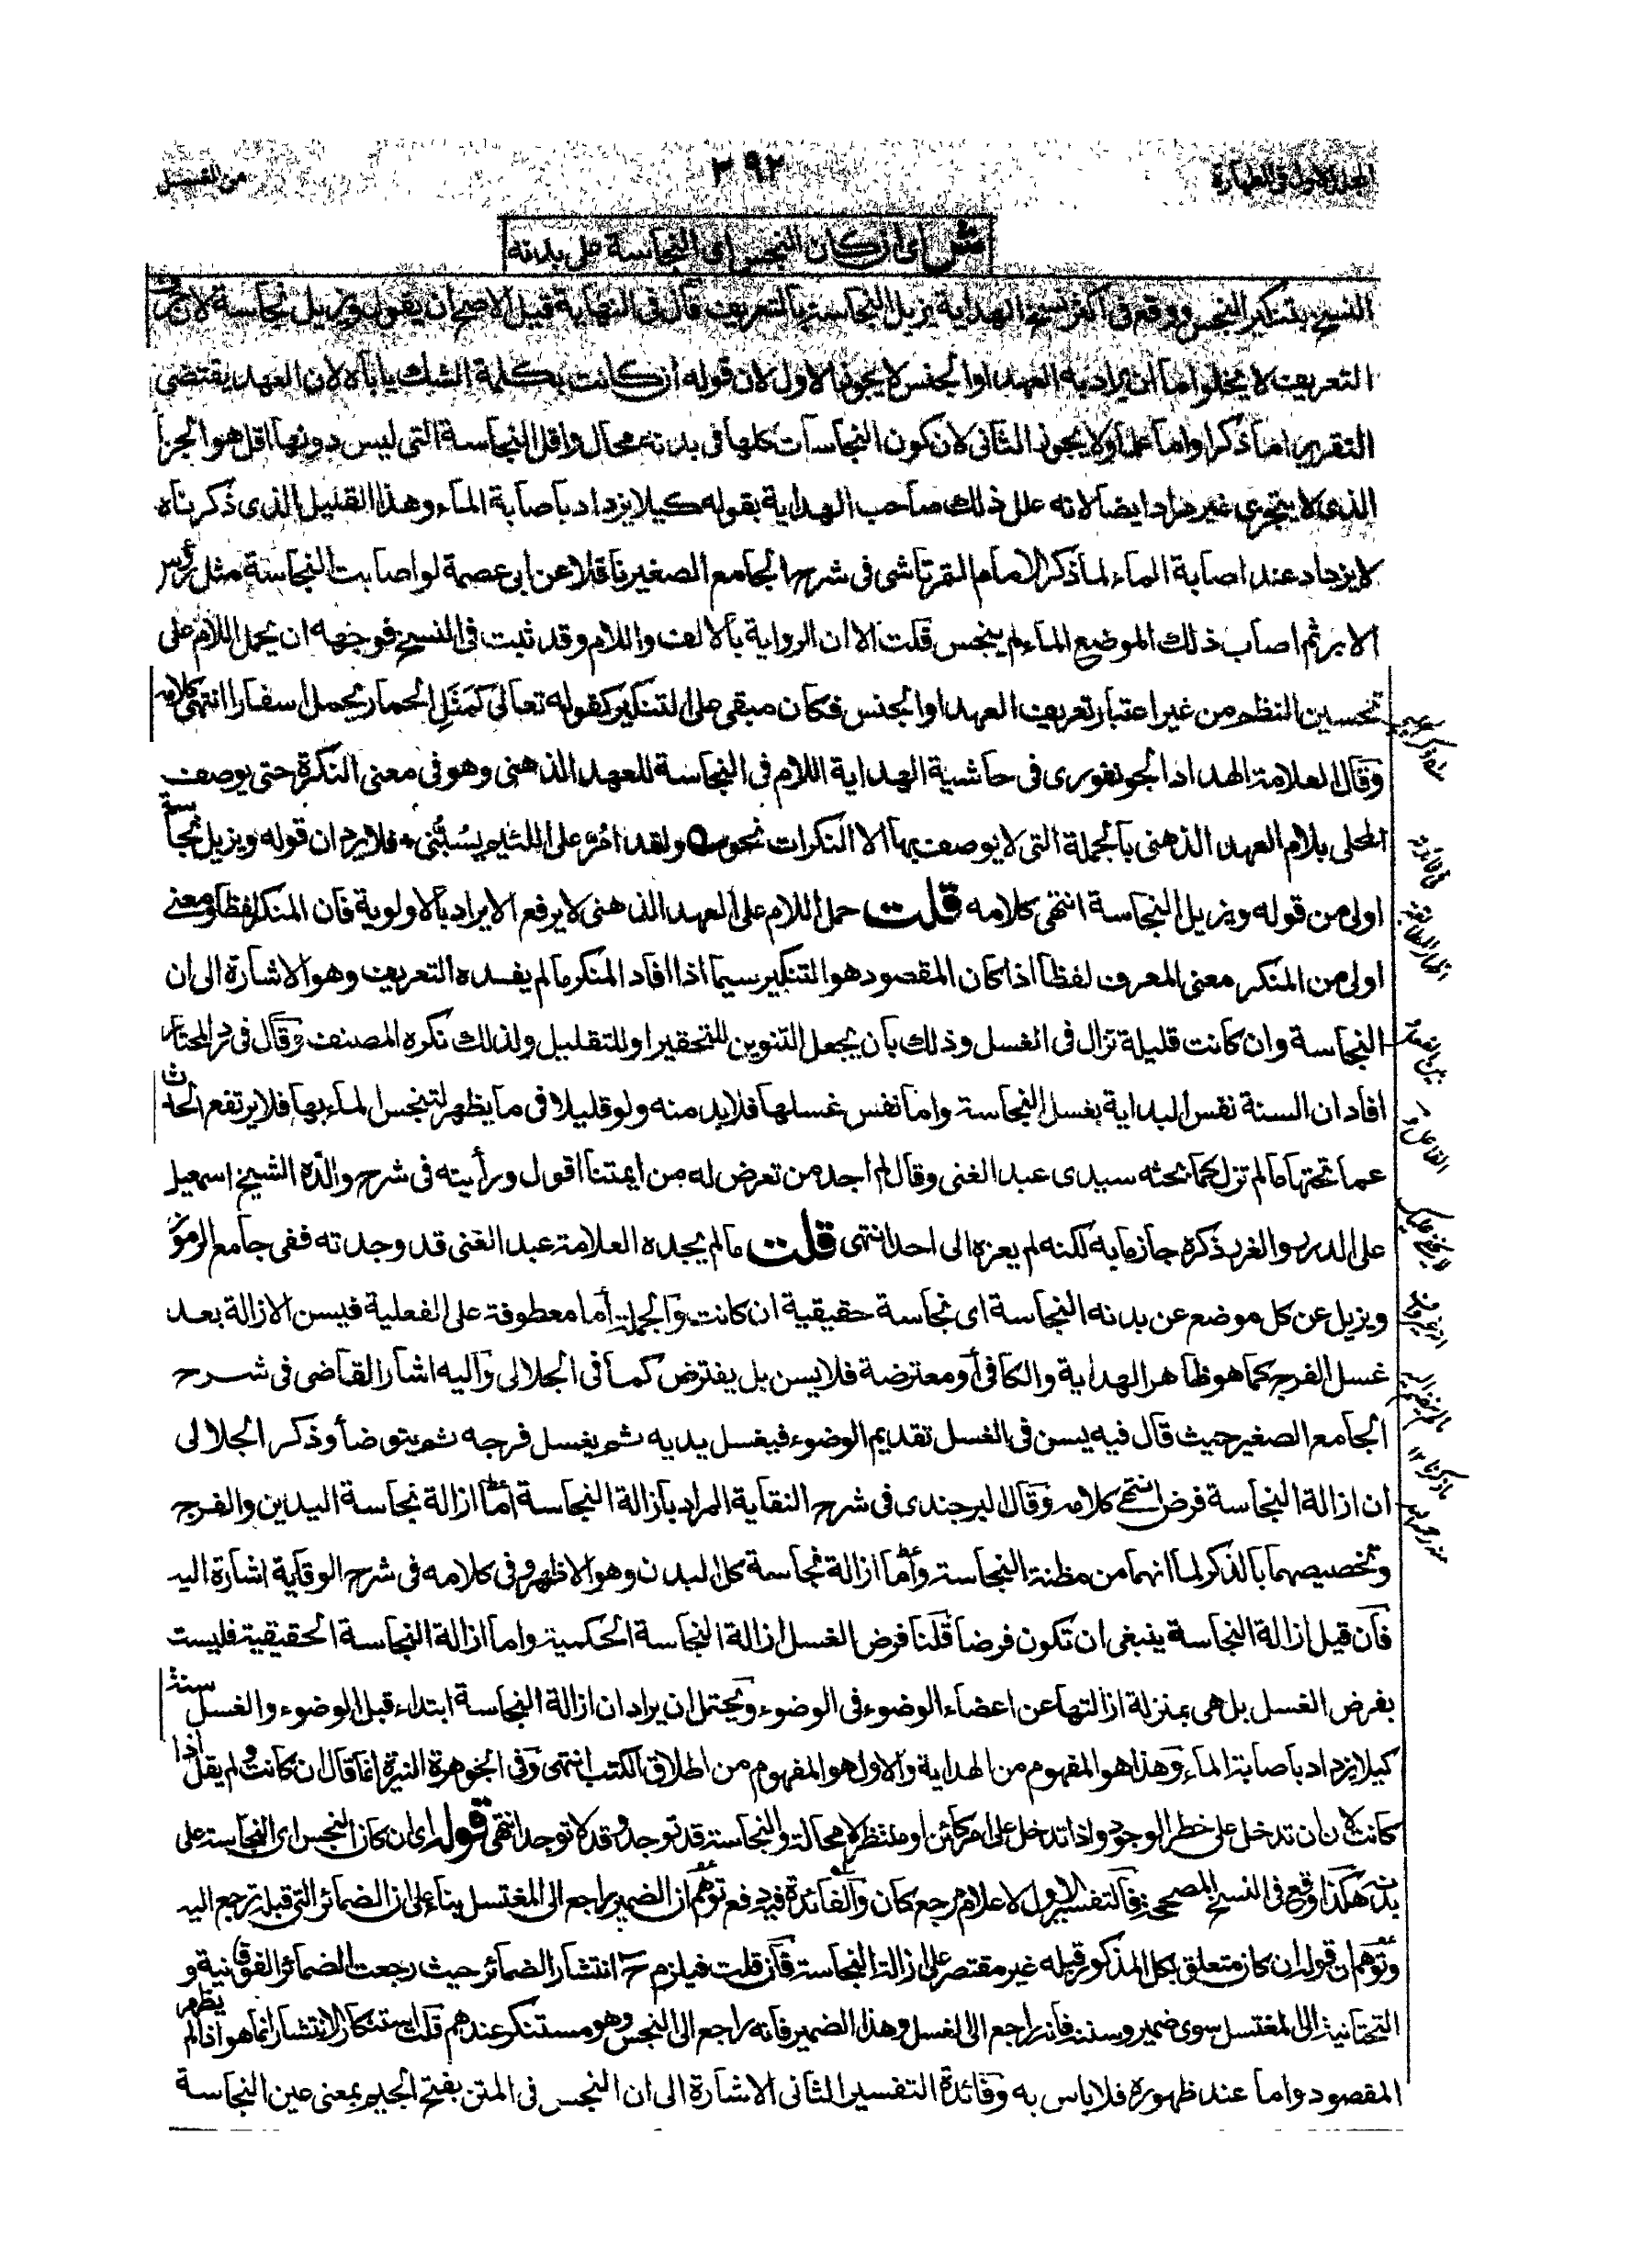 الجلد الاول في الطهارة
٢٩٢
من الغسل
ش اى ان كان النجس اى النجاسة على بدنه
النسخ بتنكير النجس ووقع في اكثر نسخ الهداية يزيل النجاسة بالتعريف قال في النهاية قيل الاصح ان يقول ويزيل نجاسة لان حرف
التعريف لا يخلو اما ان يراد به العهد او الجنس لا يجوز الاول لان قوله ان كانت بكلمة الشك يأباه لان العهد يقتضى
التقرير اما ذكرا واما علما ولا يجوز الثانى لان كون النجاسات كلها في بدنه محال واقل النجاسة التى ليس دونها اقل هو الجزأ
الذى لا يتجزى غير مراد ايضا لانه علل ذلك صاحب الهداية بقوله كيلا يزداد باصابة الماء وهذا القليل الذى ذكرناه
لا يزداد عند اصابة الماء لما ذكر الامام التمرتاشى في شرح الجامع الصغير ناقلا عن ابى عصمة لو اصابت النجاسة مثل رؤس
الابر ثم اصاب ذلك الموضع الماء لم ينجس قلت الا ان الرواية بالالف واللام وقد ثبت في النسخ فوجهه ان يحمل اللام على
تحسين النظم من غير اعتبار تعريف العهد او الجنس فكان مبقى على التنكير كقوله تعالى كَمَثَلِ الحمار يحمل اسفارا انتهى كلامه
وقال العلامة الهداد الجونفورى في حاشية الهداية اللام في النجاسة للعهد الذهنى وهو في معنى النكرة حتى يوصف
المحلى بلام العهد الذهنى بالجملة التى لا يوصف بها الا النكرات نحو ولقد امُرّ على اللئيم يسُبُّنى فلا يرد ان قوله ويزيل نجاسة
اولى من قوله ويزيل النجاسة انتهى كلامه قلت حمل اللام على العهد الذهنى لا يرفع الايراد بالاولوية فان المنكر لفظا ومعنى
اولى من المنكر معنى المعرف لفظا اذا كان المقصود هو التنكير سيما اذا افاد المنكر ما لم يفده التعريف وهو الاشارة الى ان
النجاسة وان كانت قليلة تزال في الغسل وذلك بان يجعل التنوين للتحقير او للتقليل ولذلك نكره المصنف وقال في رد المحتار
افاد ان السنة نفس البداية بغسل النجاسة واما نفس غسلها فلا بد منه ولو قليلا في ما يظهر لتنجس الماء بها فلا يرتفع الحدث
عما تحتها ما لم تزل كما بحثه سيدى عبد الغنى وقال لم اجد من تعرض له من ايمتنا اقول ورأيته في شرح والده الشيخ اسمعيل
على الدرر والغرر ذكره جازما به لكنه لم يعزه الى احد انتهى قلت ما لم يجده العلامة عبد الغنى قد وجدته ففى جامع الرموز
ويزيل عن كل موضع عن بدنه النجاسة اى نجاسة حقيقية ان كانت والجملة اما معطوفة على الفعلية فيسن الازالة بعد
غسل الفرج كما هو ظاهر الهداية والكافى او معترضة فلا يسن بل يفترض كما في الجلالى واليه اشار القاضى في شرح
الجامع الصغير حيث قال فيه يسن في الغسل تقديم الوضوء فيغسل يديه ثم يغسل فرجه ثم يتوضأ وذكر الجلالى
ان ازالة النجاسة فرض انتهى كلامه وقال البرجندى في شرح النقاية المراد بازالة النجاسة اما ازالة نجاسة اليدين والفرج
وتخصيصهما بالذكر لما انهما من مظنة النجاسة واما ازالة نجاسة كل البدن وهو الاظهر وفى كلامه في شرح الوقاية اشارة اليه
فان قيل ازالة النجاسة ينبغى ان تكون فرضا قلنا فرض الغسل ازالة النجاسة الحكمية واما ازالة النجاسة الحقيقية فليست
بفرض الغسل بل هى بمنزلة ازالتها عن اعضاء الوضوء في الوضوء ويحتمل ان يراد ان ازالة النجاسة ابتداء قبل الوضوء والغسل سنة
كيلا يزداد باصابة الماء وهذا هو المفهوم من الهداية والاول هو المفهوم من اطلاق الكتب انتهى وفى الجوهرة النيرة انما قال ان كانت ولم يقل اذا
كانت لان ان تدخل على خطر الوجود واذا تدخل على امر كائن او منتظر لا محالة والنجاسة قد توجد وقد لا توجد انتهى قوله اى ان كان النجس اى النجاسة على
بدنه هكذا وقع في النسخ المصححة فالتفسير الاول لاعلام مرجع كان والفائدة فيه دفع توهم ان الضمير راجع الى المغتسل بناء على ان الضمائر التى قبله ترجع اليه
وتوهم ان قوله ان كان متعلق بكل المذكور قبله غير مقتصر على ازالة النجاسة فان قلت فيلزم ح انتشار الضمائر حيث رجعت الضمائر الفوقانية و
التحتانية الى المغتسل سوى ضمير وسننه فانه راجع الى الغسل وهذا الضمير فانه راجع الى النجس وهو مستنكر عندهم قلت استنكار الانتشار انما هو اذا لم يظهر
المقصود واما عند ظهوره فلا باس به وفائدة التفسير الثانى الاشارة الى ان النجس في المتن بفتح الجيم بمعنى عين النجاسة